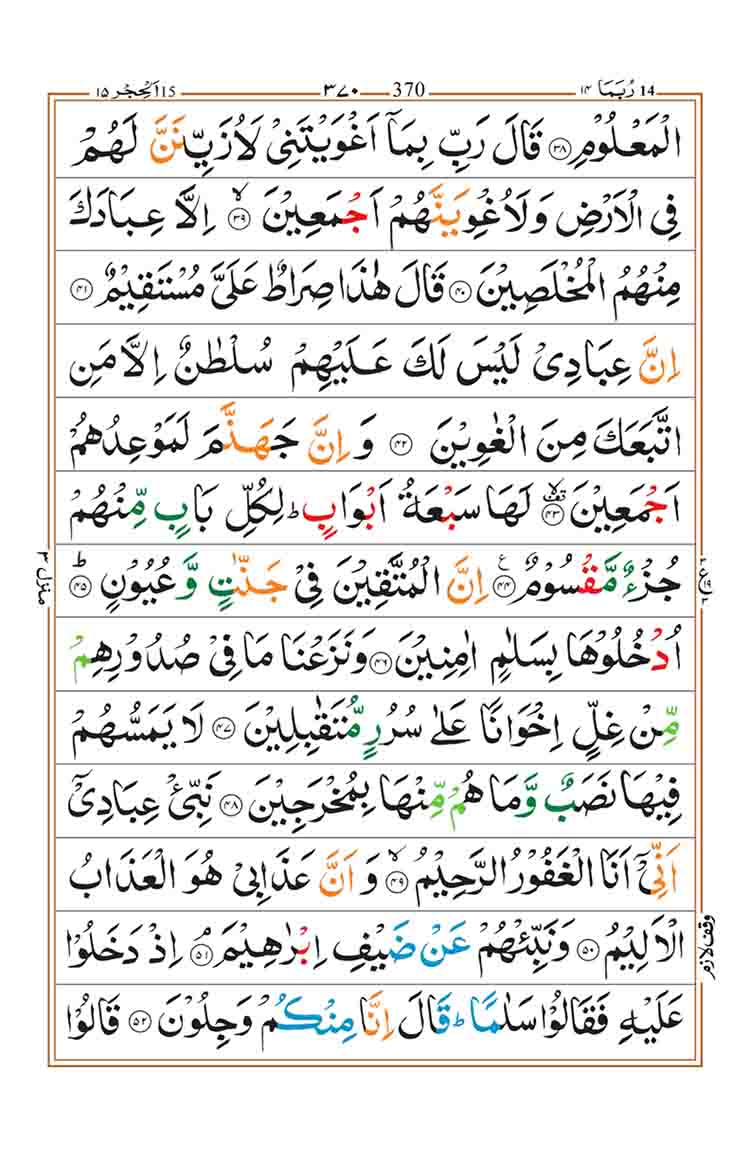 14 رُبَمَا ١٤ 370 ٣٧٠ 15 اَلْحِجْر ١٥
الْمَعْلُوْمِ ۟۳۸ قَالَ رَبِّ بِمَاۤ اَغْوَيْتَنِىْ لَاُزَيِّنَنَّ لَهُمْ
فِى الْاَرْضِ وَلَاُغْوِيَنَّهُمْ اَجْمَعِيْنَ ۙ‏۳۹ اِلَّا عِبَادَكَ
مِنْهُمُ الْمُخْلَصِيْنَ ۴۰ قَالَ هٰذَا صِرَاطٌ عَلَىَّ مُسْتَقِيْمٌ ۴۱
اِنَّ عِبَادِىْ لَيْسَ لَكَ عَلَيْهِمْ سُلْطٰنٌ اِلَّا مَنِ
اتَّبَعَكَ مِنَ الْغٰوِيْنَ ۴۲ وَ اِنَّ جَهَنَّمَ لَمَوْعِدُهُمْ
اَجْمَعِيْنَ ۴۳ لَهَا سَبْعَةُ اَبْوَابٍ ؕ لِكُلِّ بَابٍ مِّنْهُمْ
جُزْءٌ مَّقْسُوْمٌ ۴۴ اِنَّ الْمُتَّقِيْنَ فِىْ جَنّٰتٍ وَّعُيُوْنٍ ؕ ۴۵
اُدْخُلُوْهَا بِسَلٰمٍ اٰمِنِيْنَ ۴۶ وَنَزَعْنَا مَا فِىْ صُدُوْرِهِمْ
مِّنْ غِلٍّ اِخْوَانًا عَلٰى سُرُرٍ مُّتَقٰبِلِيْنَ ۴۷ لَا يَمَسُّهُمْ
فِيْهَا نَصَبٌ وَّمَا هُمْ مِّنْهَا بِمُخْرَجِيْنَ ۴۸ نَبِّئْ عِبَادِىْۤ
اَنِّىْۤ اَنَا الْغَفُوْرُ الرَّحِيْمُ ۙ ۴۹ وَ اَنَّ عَذَابِىْ هُوَ الْعَذَابُ
الْاَلِيْمُ ۵۰ وَنَبِّئْهُمْ عَنْ ضَيْفِ اِبْرٰهِيْمَ ۘ ۵۱ اِذْ دَخَلُوْا
عَلَيْهِ فَقَالُوْا سَلٰمًا ؕ قَالَ اِنَّا مِنْكُمْ وَجِلُوْنَ ۵۲ قَالُوْا
منزل ۳
وقف لازم